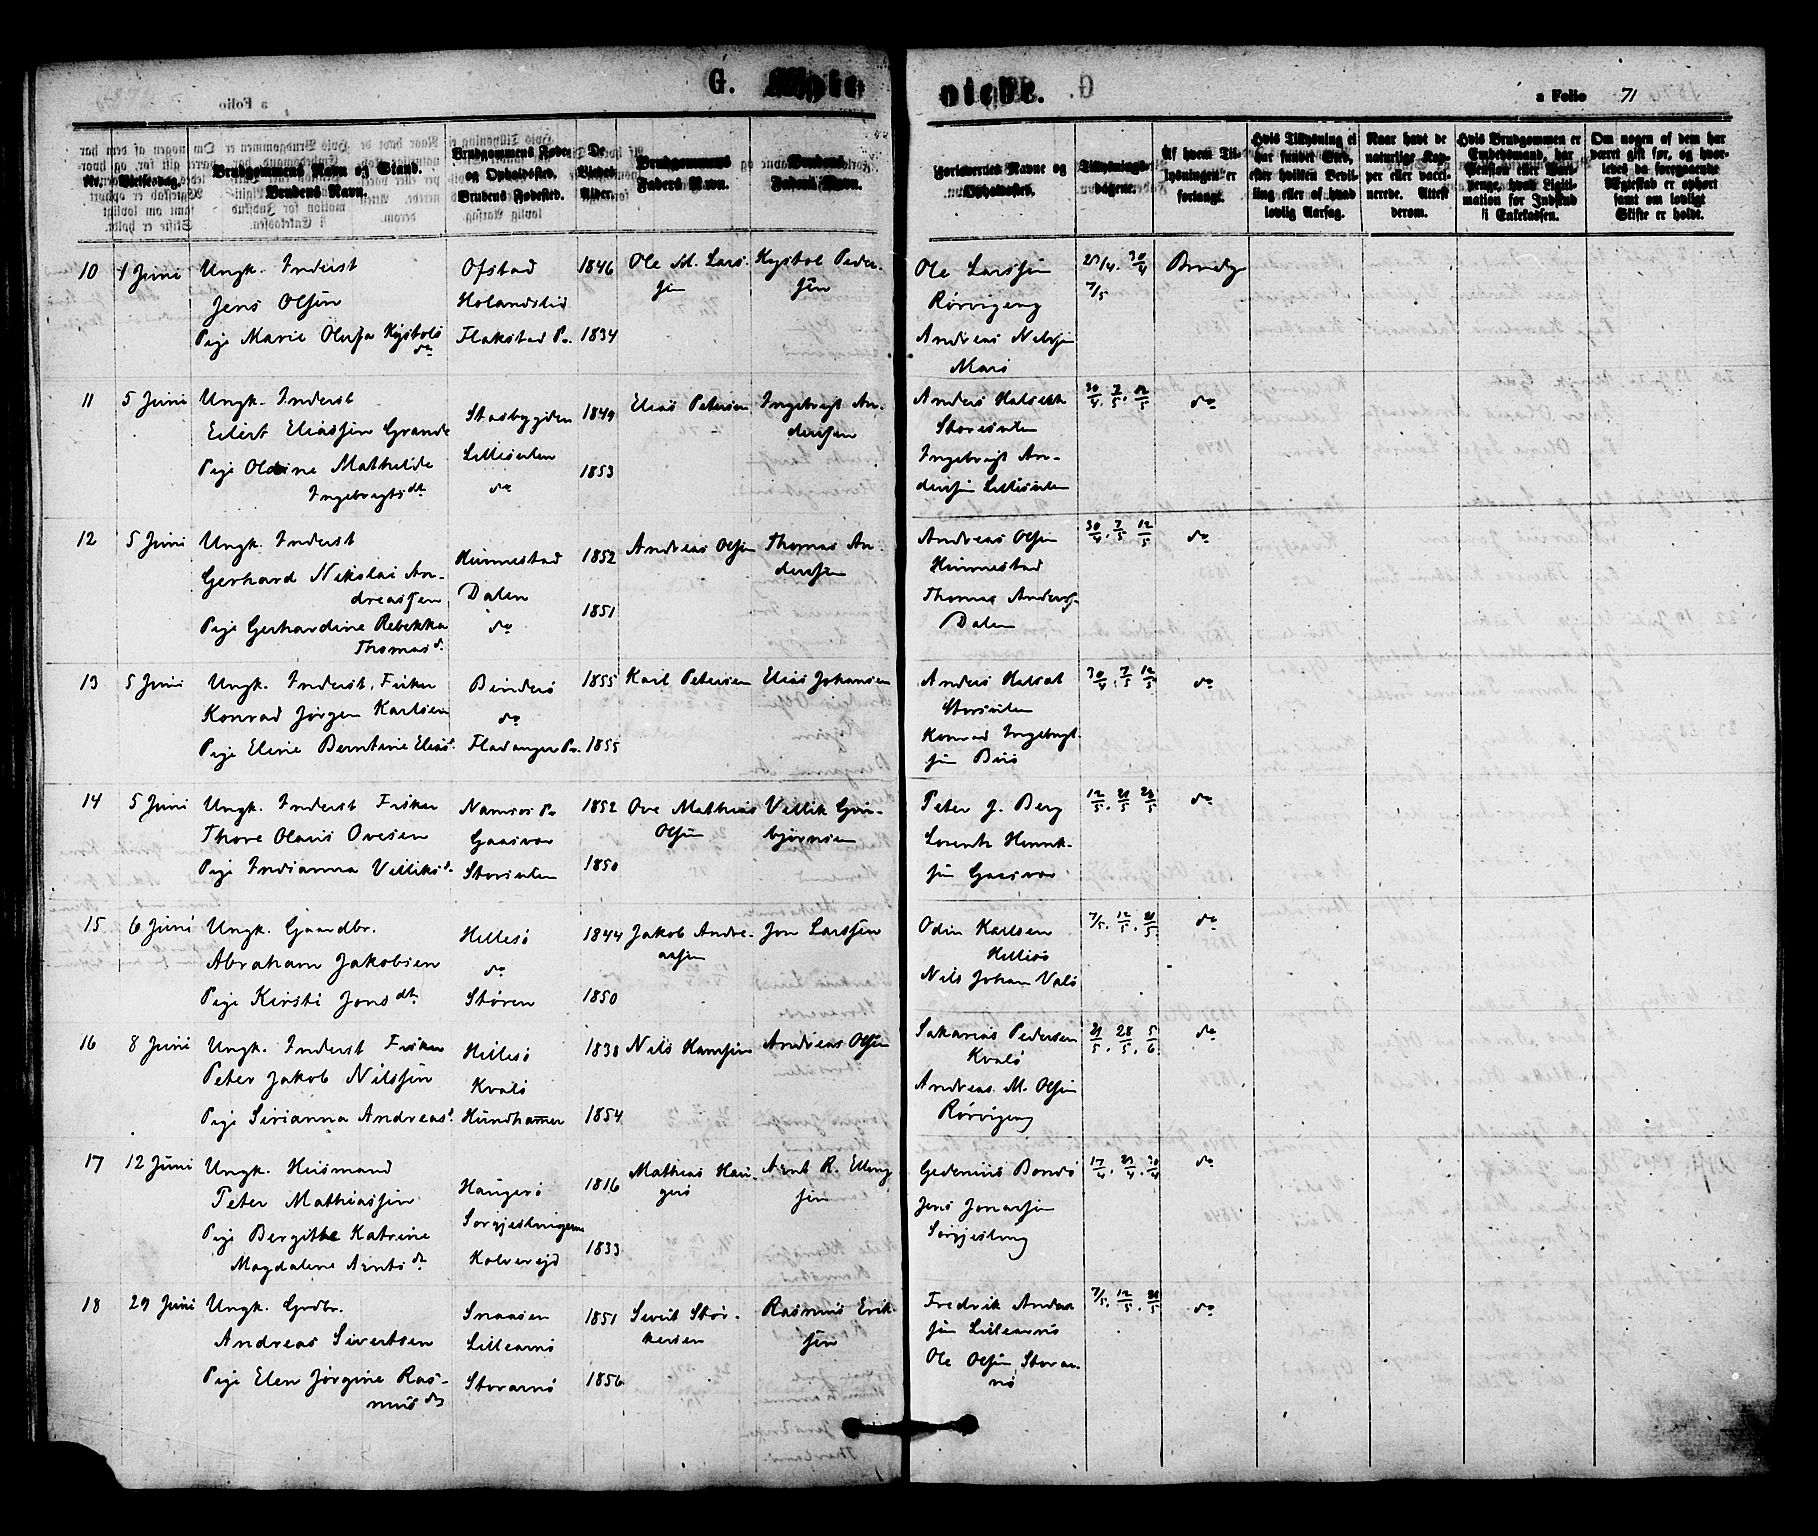 G.
a Folio 71
Nr.
Vielsesdag.
Brudgommens Navn og Stand.
Brudens Navn.
Brudgommens Føde-
og Opholdssted.
Brudens Fødested.
De
Viedes
Alder.
Brudgommens
Faders Navn.
Brudens
Faders Navn.
Forlovernes Navne og
Opholdssted.
Tillysnings-
dagene.
Af hvem Til-
lysningen er
forlangt.
Hvis Tillysning ei
har fundet Sted,
efter hvilken Bevil-
ling eller af hvad
lovlig Aarsag.
Naar havt de
naturlige Kop-
per eller vacci-
nerede. Attest
derom.
Hvis Brudgommen er
Embedsmand, har
Om nogen af dem har
været gift før, og hvor-
ledes da foregaaende
Ægteskab er ophørt
samt om lovligt
Skifte er holdt.
10 1 Juni Ungk. Inderst
Jens Olsen
Pige Marie Olufa Kystols dr
Ofstad
Holandslid
Flakstad Pr.
1846
1834
Ole M. Lars-
sen
Kystol Peder-
sen
Ole Larssen
Rørvigeng
Andreas Nilssen
Marø
23/4. 30/4
7/5
Brudg.
11 5 Juni Ungk. Inderst
Eilert Eliassen Grande
Pige Oldine Mathilde
Ingebrigts dt
Stadsbygden
Lillesulen
do
1849
1853
Elias Petersen
Ingebrigt An-
dersen
Anders
Storesulen
Ingebrigt An-
dersen Lillesulen
30/4. 7/5. 12/5
do
12 5 Juni Ungk. Inderst
Gerhard Nikolai An-
dreassen
Pige Gerhardine Rebekka
Thomas d.
Hunnestad
Dalen
do
1852
1851
Andreas Olsen
Thomas An-
dersen
Andreas Olsen
Hunnestad
Thomas Anders.
Dalen
30/4. 7/5 12/5
do
13 5 Juni Ungk. Inderst, Fisker
Konrad Jørgen Karlsen
Pige Eline Berntine Elias d.
Bindersø
do
Fladanger Pr.
1855
1855
Karl Petersen
Elias Johansen
Anders
Storsulen
Konrad Ingebrigt-
sen
30/4. 7/5 12/5
do
14 5 Juni Ungk. Inderst Fisker
Thore Olaus Ovesen
Pige Indianna Velliks d.
Namsos Pr
Gaasvær
Storsulen
1852
1850
Ove Mathias
Olsen
Vellik Gun-
bjørnsen
Peter J. Berg
Lorents Henrik-
sen Gaasvær
12/5. 21/5 28/5
do
15 6 Juni Ungk. Gaardbr.
Abraham Jakobsen
Pige Kirsti Jons dt.
Hillesø
do
Støren
1844
1850
Jakob Andre-
assen
Jon Larssen
Odin Karlsen
Hillesø
Nils Johan Valø
7/5. 12/5. 21/5
do
16 8 Juni Ungk. Inderst Fisker
Peter Jakob Nilssen
Pige Sirianna Andreas d.
Hillesø
Kvalø
Hundhammer
1830
1854
Nils Hanssen
Andreas Olsen
Sakarias Pedersen
Kvalø
Andreas M. Olsen
Rørvigeng
21/5. 28/5. 5/6
do
17 12 Juni Ungk. Husmand
Peter Mathiassen
Pige Bergitte Katrine
Magdalene Arnts dr
Haugerø
Kolvereid
1816
1833
Mathias Hau-
gerø
Arnt R. Elling-
sen
Gedenius Bondø
Jens Jonassen
17/4. 23/4. 30/4
do
18 29 Juni Ungk. Grdbr.
Andreas Sivertsen
Pige Elen Jørgine Ras-
mus dr
Snaasen
Lillearnø
Storarnø
1851
1856
Sivert Stør-
kersen
Rasmus Erik-
sen
Fredrik Anders-
sen Lillearnø
Ole Olsen Storar-
nø
7/5. 12/5. 21/5
do